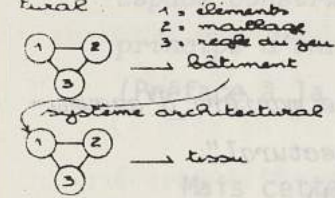 tural
1 = éléments
2 = maillage
3 = regle du jeu
1 2
3
bâtiment
système architectural
1 2
3
tissu